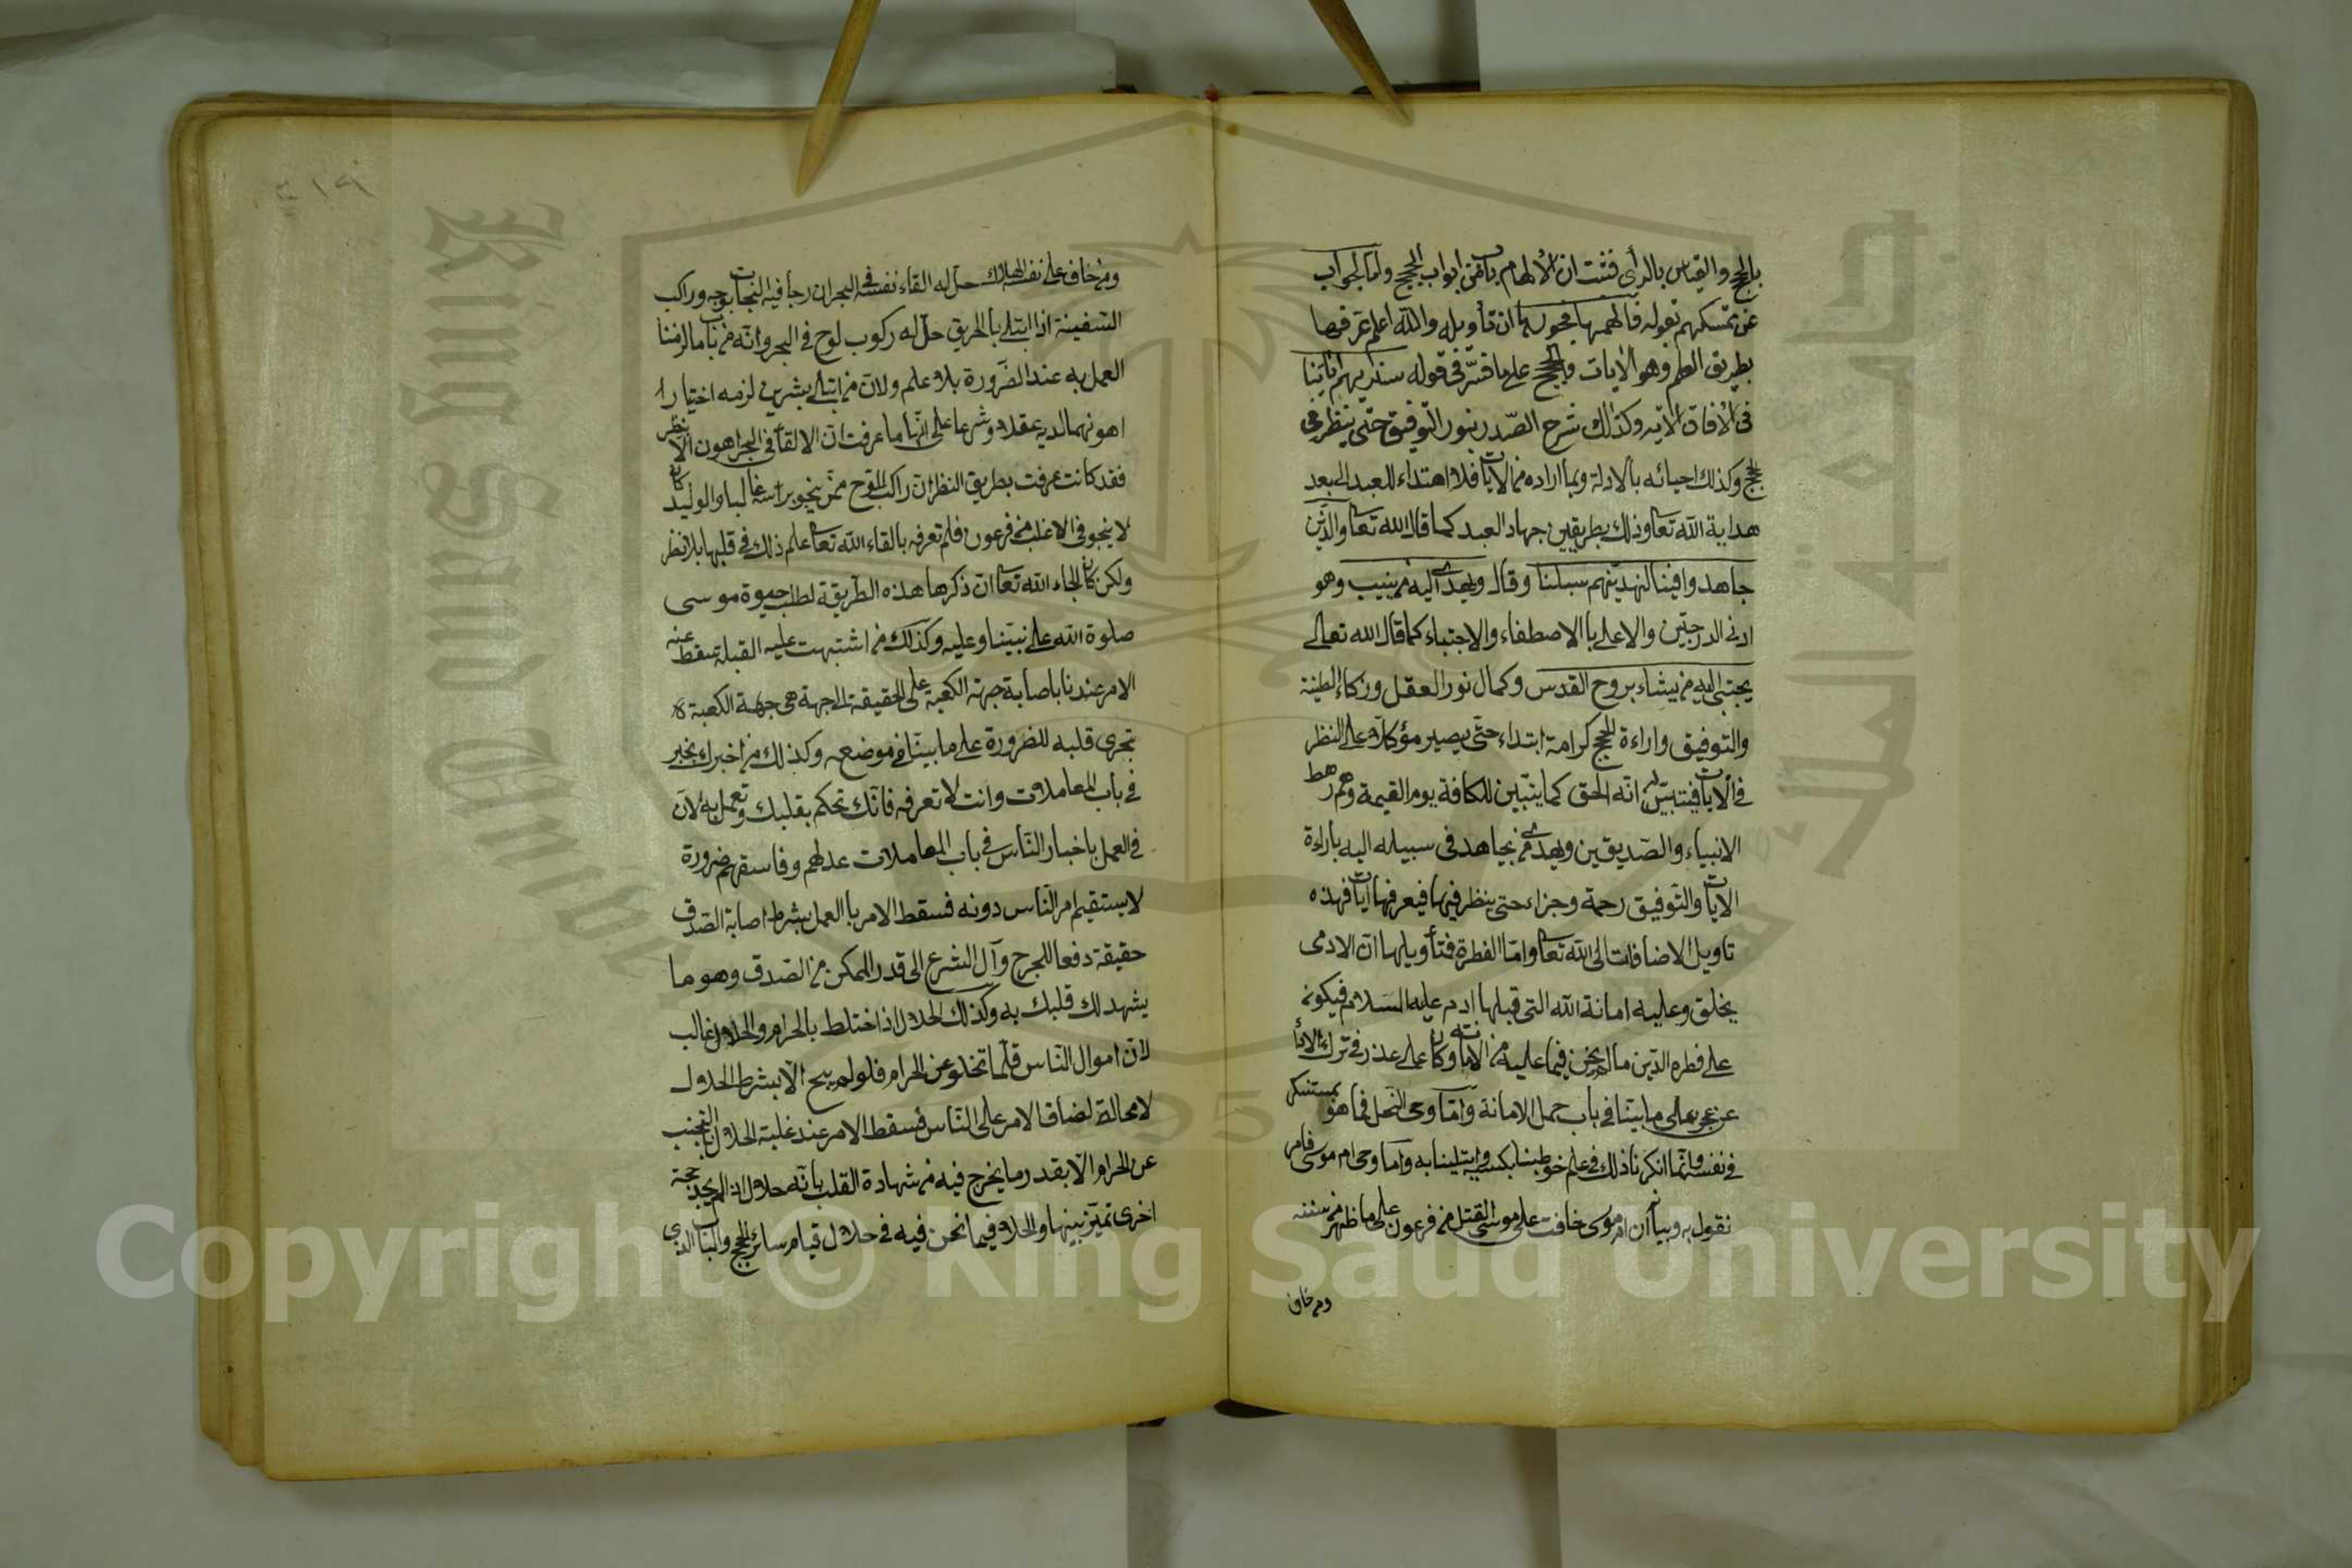 بالحجج والقياس بالرأى فثبت ان الالهام باق من ابواب الحجج واما الجواب
عن تمسكهم بقوله فالهمها فجورها ان تأويله والله اعلم عرفها
بطريق العلم وهو الايات والحجج على ما فسّر فى قوله سنريهم اياتنا
فى الافاق الاية وكذلك شرح الصّدر بنور التّوفيق حتى ينظر فى
الحجج وكذلك احيائه بالادلة وبما اراده من الايات فلا اهتداء للعبد الا بعد
هداية الله تعا وذلك بطريقين جهاد العبد كما قال الله تعا والذين
جاهدوا فينا لنهدينّهم سبلنا وقال ويهدى اليه من ينيب وهو
ادنى الدرجتين والاعلى بالاصطفاء والاجتباء كما قال الله تعالى
يجتبى اليه من يشاء بروح القدس وكمال نور العقل وزكاء الطينة
والتوفيق واراءة الحجج كرامة ابتداء حتّى يصير مؤكلا على النظر
فى الايات فيتبيّن له انّه الحق كما يتبّين للكافة يوم القيمة وهم رهط
الانبياء والصّديقين ويهدى من يجاهد فى سبيله اليه باراءة
الايات والتّوفيق رحمة وجزاء حتى ينظر فيها فيعرفها ايات فهذه
تاويل الاضافات الى الله تعا وامّا الفطرة فتأويلها انّ الادمى
يخلق وعليه امانة الله التى قبلها ادم عليه السّلام فيكون
على فطرة الدّين ما لم يخن فيما عليه من الامانة وكان على عذر فى ترك الاداء
عن عجز على ما بيّنا فى باب حمل الامانة وامّا وحى النّحل فما هو بمستنكر
فى نفسه وانّما انكرنا ذلك فى علم خوطبنا بكسبه وابتلينا به وامّا وحى ام موسى فامر
نقول به وبيانه ان ام موسى خافت على موسى القتل من فرعون على ما ظهر من سننه
ومن خاف
٢١٩
ومن خاف على نفسه الهلاك حلّ له القاء نفسه فى البحر ان رجا فيه النجاة بوجه وراكب
السّفينة اذا ابتلى بالحريق حلّ له ركوب لوح فى البحر وانّه من باب ما لزمنا
العمل به عند الضّرورة بلا علم ولان من ابتلى بشرين لزمه اختيار
اهونهما لديه عقلا وشرعا على انّها ما عرفت انّ الالقاء فى البحر اهون الا بنظر
فقد كانت عرفت بطريق النظر انّ راكب اللّوح ممّن ينجو براسه غالبا والوليد كان
لا ينجو فى الاغلب من فرعون فلم تعرفه بالقاء الله تعا علم ذلك فى قلبها بلا نظر
ولكن كان الجاء الله تعا ان ذكرها هذه الطّريقة لطلب حيوة موسى
صلوة الله على نبيّنا وعليه وكذلك من اشتبهت عليه القبلة سقط عنه
الامر عندنا باصابة جهة الكعبة على الحقيقة الى جهة هى جهة الكعبة
بتحرى قلبه للضرورة على ما بيّنا فى موضعه وكذلك من اخبرك بخبر
فى باب المعاملات وانت لا تعرفه فانّك تحكم بقلبك وتعمل به لانّ
فى العمل باخبار النّاس فى باب المعاملات عدلهم وفاسقهم ضرورة
لا يستقيم امر النّاس دونه فسقط الامر بالعمل بشرط اصابة الصّدق
حقيقة دفعا للحرج وآل الشرع الى قدر الممكن من الصّدق وهو ما
يشهد لك قلبك به وكذلك الحلال اذا اختلط بالحرام والحلال غالب
لانّ اموال النّاس قلّما تخلو عن الحرام فلو لم يبح الّا بشرط الحلال
لا محالة لضاق الامر على النّاس فسقط الامر عند غلبة الحلال بالتّجنب
عن الحرام الّا بقدر ما يخرج فيه من شهادة القلب بانّه حلال اذا لم يجد حجة
اخرى تميّز بينهما والخلاف فيما نحن فيه فى حلال قيام سائر الحجج والباب الذى